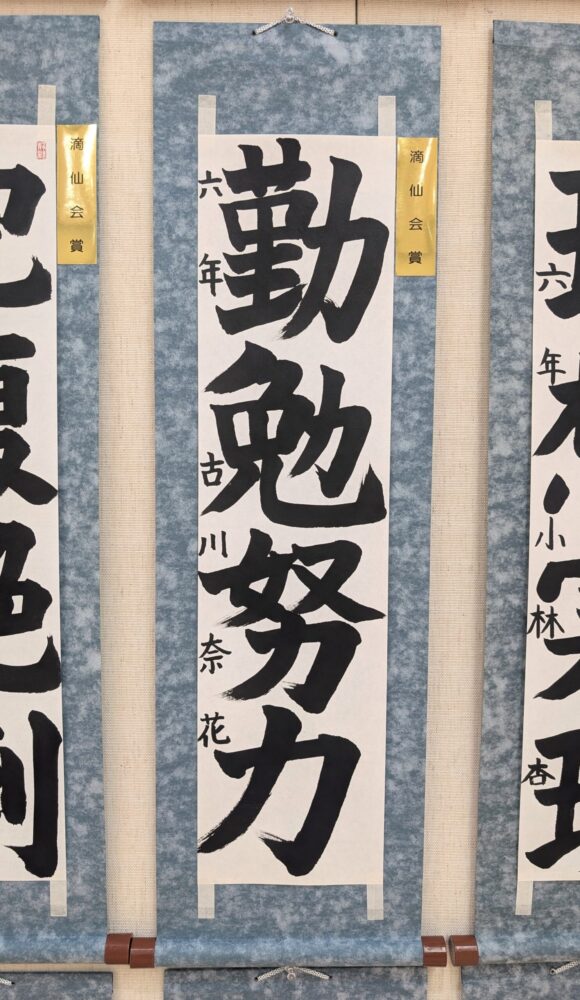 六年 小林杏
滴仙会賞
勤勉努力
六年 古川奈花
滴仙会賞